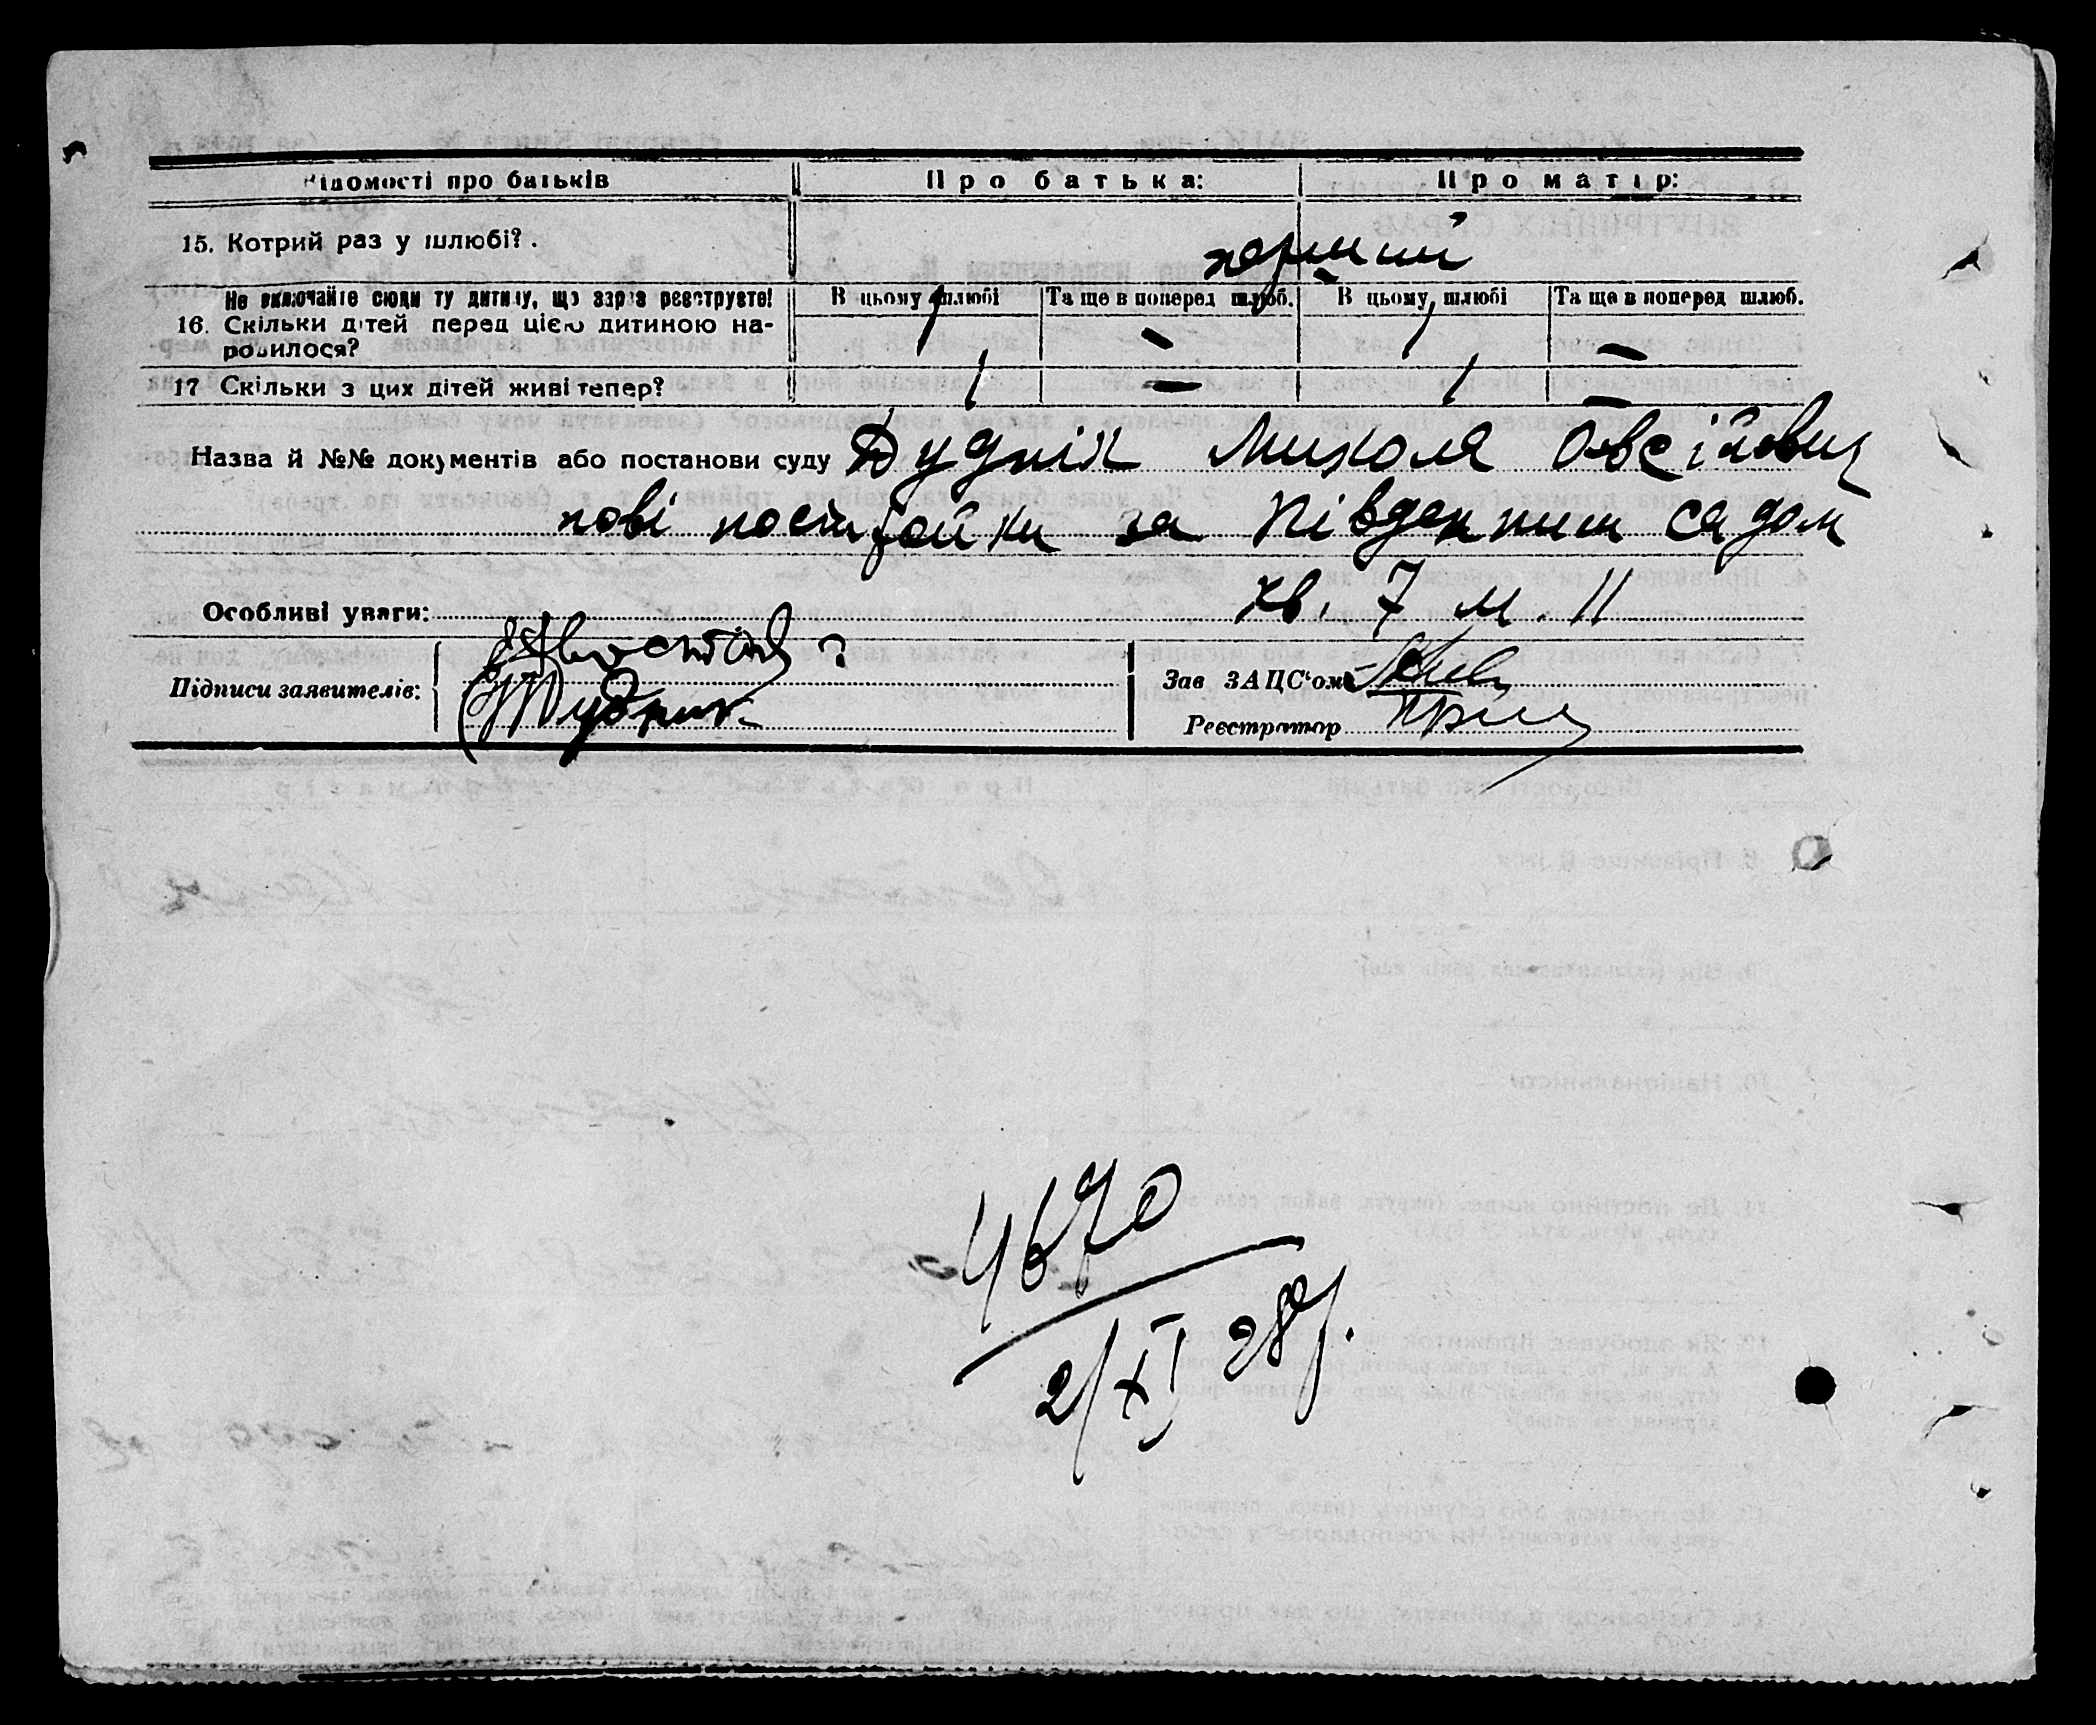 Відомості про батьків Про батька: Про матір:
15. Котрий раз у шлюбі?. перший
Не включайте сюди ту дитину, що зараз реєструєте!
16. Скільки дітей перед цією дитиною на-
родилося?
В цьому шлюбі Та ще в поперед шлюб. В цьому шлюбі Та ще в поперед шлюб.
1 — 1 —
17 Скільки з цих дітей живі тепер? 1 — 1 —
Назва й №№ документів або постанови суду Дуднік Микола Овсійович
нові постройки за Південним садом
кв. 7 м. 11
Особливі уваги:
Підписи заявителів:
Дудник
Зав ЗАЦС'ом
Реєстратор
4670
2/XI 28р.